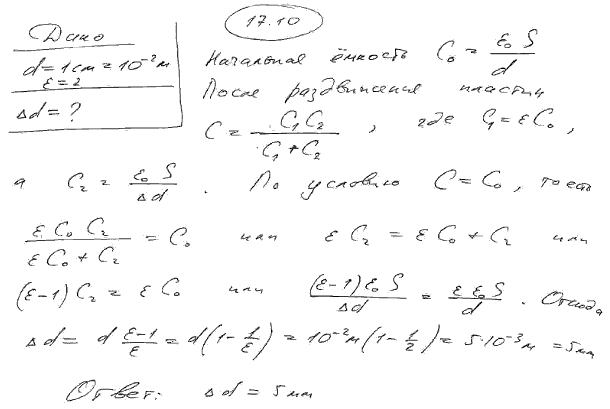 17.10
Дано
d = 1 см = 10⁻² м
ε = 2
Δd = ?
Начальная ёмкость C₀ = ε₀ S / d
После раздвижения пластин
C = C₁C₂ / (C₁ + C₂), где C₁ = εC₀,
а C₂ = ε₀ S / Δd. По условию C = C₀, то есть
ε C₀ C₂ / (ε C₀ + C₂) = C₀ или ε C₂ = ε C₀ + C₂ или
(ε-1) C₂ = ε C₀ или (ε-1) ε₀ S / Δd = ε ε₀ S / d. Откуда
Δd = d (ε-1)/ε = d(1 - 1/ε) = 10⁻² м (1 - 1/2) = 5·10⁻³ м = 5 мм
Ответ: Δd = 5 мм